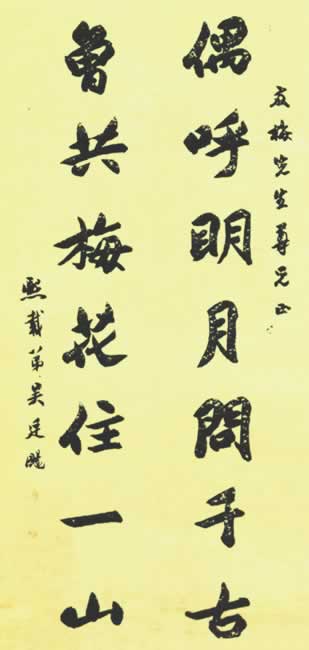 友梅先生尊兄正
偶呼明月問千古
曾共梅花住一山
熙載弟吳廷颺